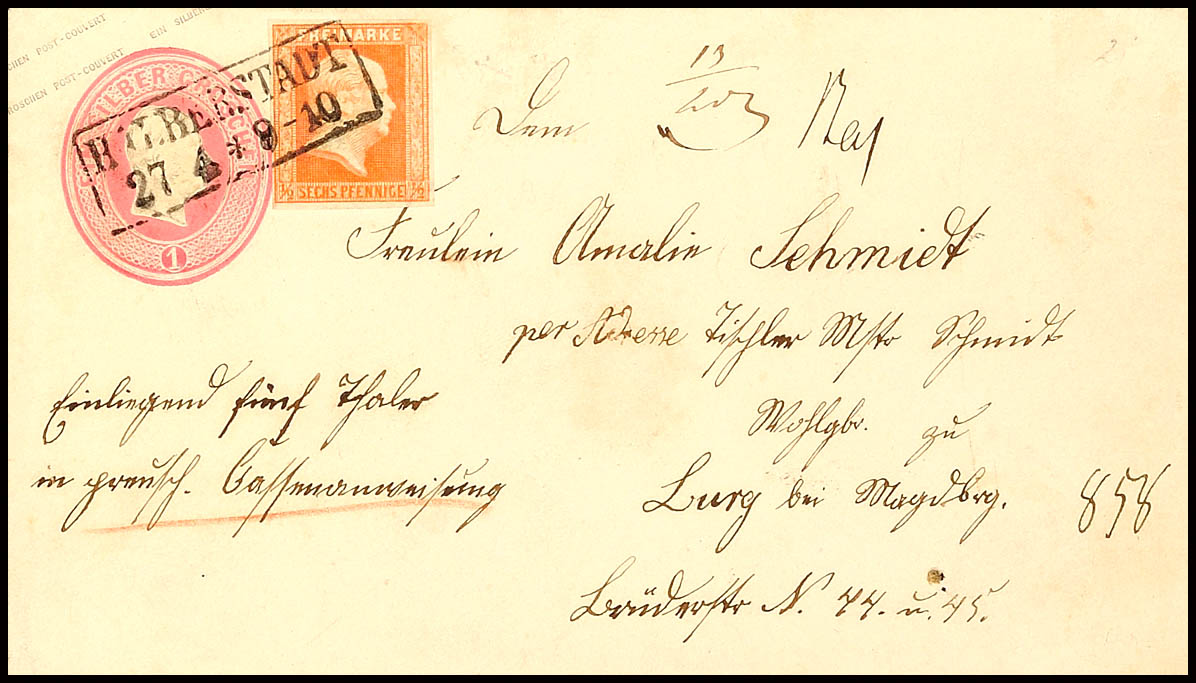 CHEN POST-COUVERT EIN SILBER
ROSCHEN POST-COUVERT
SILBER GROSCHEN
1
FREIMARKE
½ SECHS PFENNIGE ½
HALBERSTADT
27 4 * 9-10
13
Fräulein Amalie Schmidt
per Adresse Tischler Mstr Schmidt
Wohlgb. zu
Burg bei Magdbrg.
858
Brüderstr N. 44. u. 45.
Einliegend fünf Thaler
in preusch. Cassenanweisung